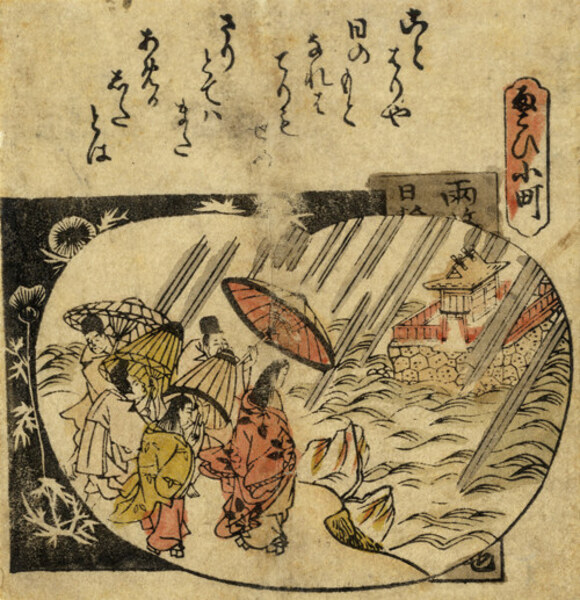 雨こひ小町
こと
はりや
日のもと
なれは
てりも
せめ
さり
とてハ
また
あめか
した
とは
雨
日